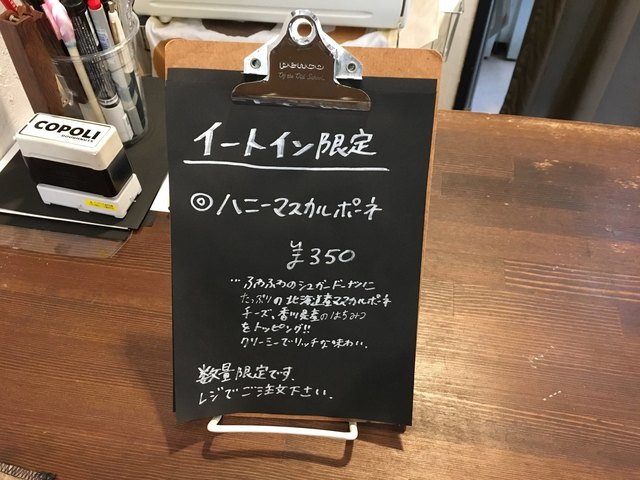 COPOLI
DOUGHNUTS
PENCO
イートイン限定
◎ ハニーマスカルポーネ
¥350
…ふわふわのシュガードーナツに
たっぷりの北海道産マスカルポーネ
チーズ、香川県産のはちみつ
をトッピング!!
クリーミーでリッチな味わい。
数量限定です。
レジでご注文下さい。